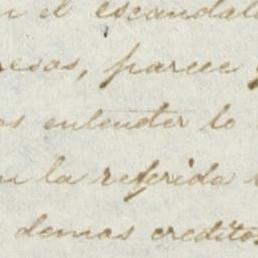 n el escandal
resas, parece
os entender lo
n la referida
demas credito